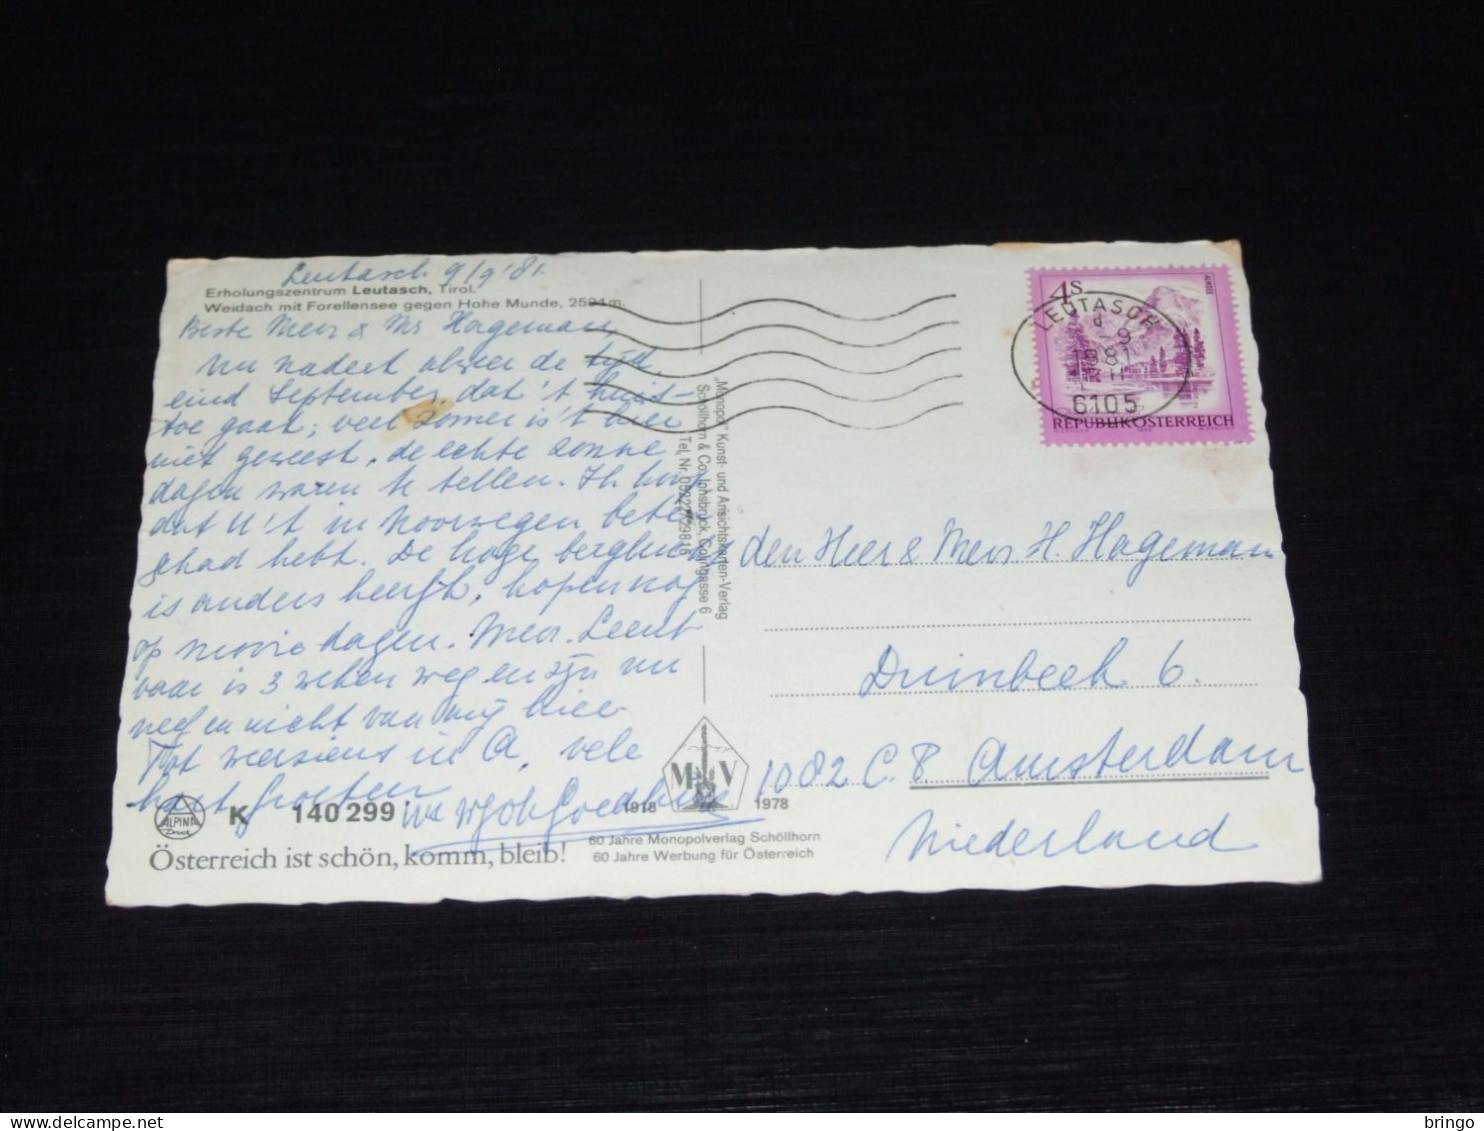 Leutasch 9/9 '81.
Erholungszentrum Leutasch, Tirol.
Weidach mit Forellensee gegen Hohe Munde, 2594 m.
Beste Mevr & Mr Hageman,
Nu nadert alweer de tijd,
eind September, dat 't huis-
toe gaat, veel zomer is 't hier
niet geweest, de echte zonne
dagen waren te tellen. Ik
dat U 't in Noorwegen beter
gehad hebt. De hoge
is anders heerlijk, hopen nog
op mooie dagen. Mevr.
is 3 weken weg en zijn nu
negen nicht van mij hier
Tot weerziens in A, vele
hart. groeten
„Monopol" Kunst- und Ansichtskarten-Verlag
Schöllhorn & Co., Innsbruck, Colingasse 6
Tel. Nr. 05222/29816
4 S
ALMSEE
REPUBLIK ÖSTERREICH
LEUTASCH
d
-9
1981
6105
den Heer & Mevr H. Hageman
6.
1082 C.P. Amsterdam
Niederland
ALPINA
Druck
K 140 299
M V
1918 1978
60 Jahre Monopolverlag Schöllhorn
60 Jahre Werbung für Österreich
Österreich ist schön, komm, bleib!
bringo
www.delcampe.net